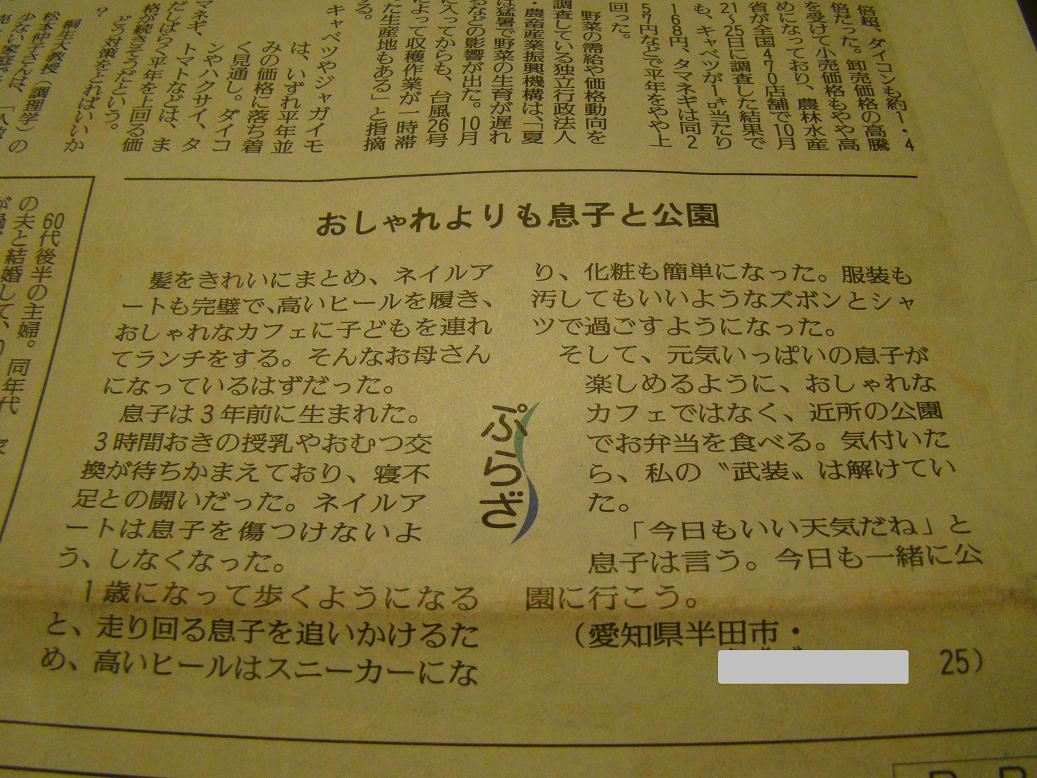 倍超、ダイコンも約1・4
倍だった。卸売価格の高騰
を受けて小売価格もやや高
めになっており、農林水産
省が全国470店舗で10月
21～25日に調査した結果で
も、キャベツが1㌔当たり
168円、タマネギは同2
57円などで平年をやや上
回った。
野菜の需給や価格動向を
調査している独立行政法人
・農畜産業振興機構は、「夏
は猛暑で野菜の生育が遅れ
るなどの影響が出た。10月
に入ってからも、台風26号
によって収穫作業が一時滞
た生産地もある」と指摘
る。
キャベツやジャガイモ
は、いずれ平年並
みの価格に落ち着
く見通し。ダイコ
ンやハクサイ、タ
マネギ、トマトなどは、ま
だしばらく平年を上回る価
格が続きそうだという。
どう対策をとればいいか
？
桐生大教授（調理学）の
松本仲子さんは、
少ない家庭で
おしゃれよりも息子と公園
ぷらざ
髪をきれいにまとめ、ネイルア
ートも完璧で、高いヒールを履き、
おしゃれなカフェに子どもを連れ
てランチをする。そんなお母さん
になっているはずだった。
息子は3年前に生まれた。
3時間おきの授乳やおむつ交
換が待ちかまえており、寝不
足との闘いだった。ネイルア
ートは息子を傷つけないよ
う、しなくなった。
1歳になって歩くようになる
と、走り回る息子を追いかけるた
め、高いヒールはスニーカーにな
り、化粧も簡単になった。服装も
汚してもいいようなズボンとシャ
ツで過ごすようになった。
そして、元気いっぱいの息子が
楽しめるように、おしゃれな
カフェではなく、近所の公園
でお弁当を食べる。気付いた
ら、私の〝武装〟は解けてい
た。
「今日もいい天気だね」と
息子は言う。今日も一緒に公
園に行こう。
（愛知県半田市・
25）
60代後半の主婦。同年代
の夫と結婚して、